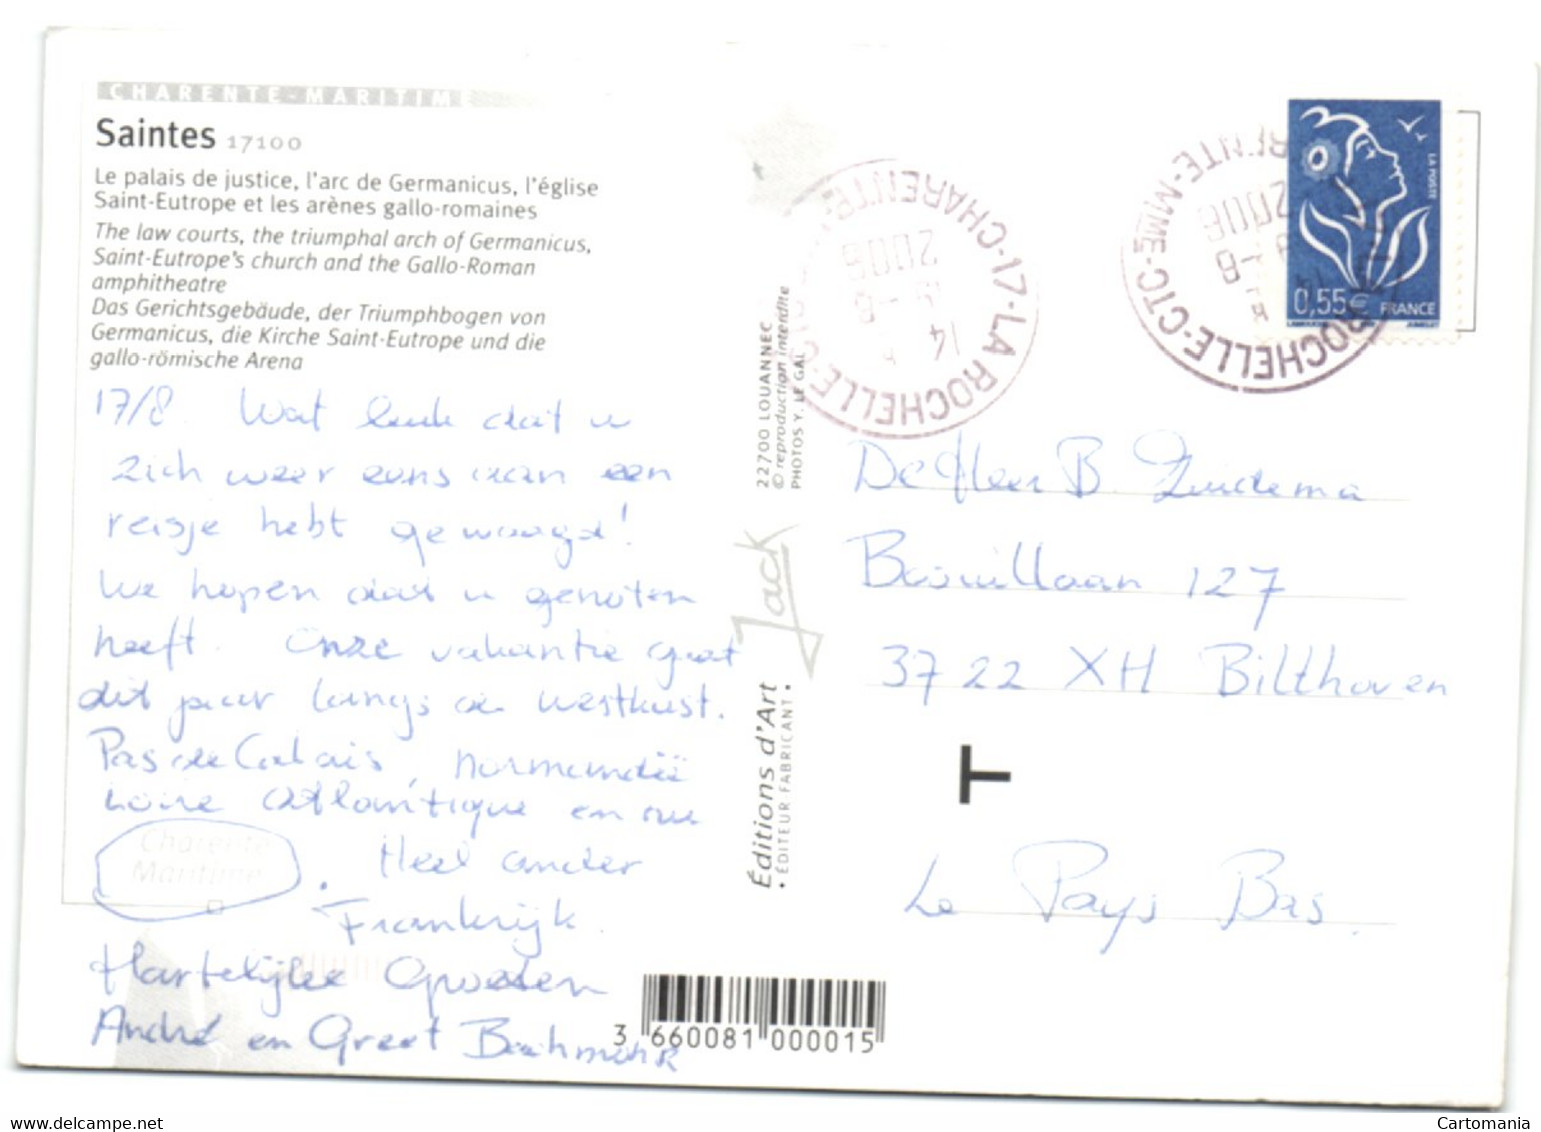 CHARENTE-MARITIME
Saintes 17100
Le palais de justice, l'arc de Germanicus, l'église
Saint-Eutrope et les arènes gallo-romaines
The law courts, the triumphal arch of Germanicus,
Saint-Eutrope's church and the Gallo-Roman
amphitheatre
Das Gerichtsgebäude, der Triumphbogen von
Germanicus, die Kirche Saint-Eutrope und die
gallo-römische Arena
17/8. Wat leuk dat u
zich weer eens aan een
reisje hebt gewaagd!
We hopen dat u genoten
heeft. Onze vakantie gaat
dit jaar langs de westkust.
Pas de Calais, Normandië
Loire Atlantique en nu
Charente
Maritime. Heel ander
Frankrijk.
Hartelijke Groeten
André en Greet
22700 LOUANNEC
© reproduction interdite
PHOTOS Y. LE GAL
Jack
Éditions d'Art
• ÉDITEUR FABRICANT •
3 660081 000015
17-LA ROCHELLE-CTC
CHARENTE
14 - 8
2006
17-LA ROCHELLE-CTC
CHARENTE-MME
14 - 8
2006
LA POSTE
0,55€ FRANCE
De Heer B. Zuidema
127
3722 XH Bilthoven
T
Le Pays Bas.
Cartomania